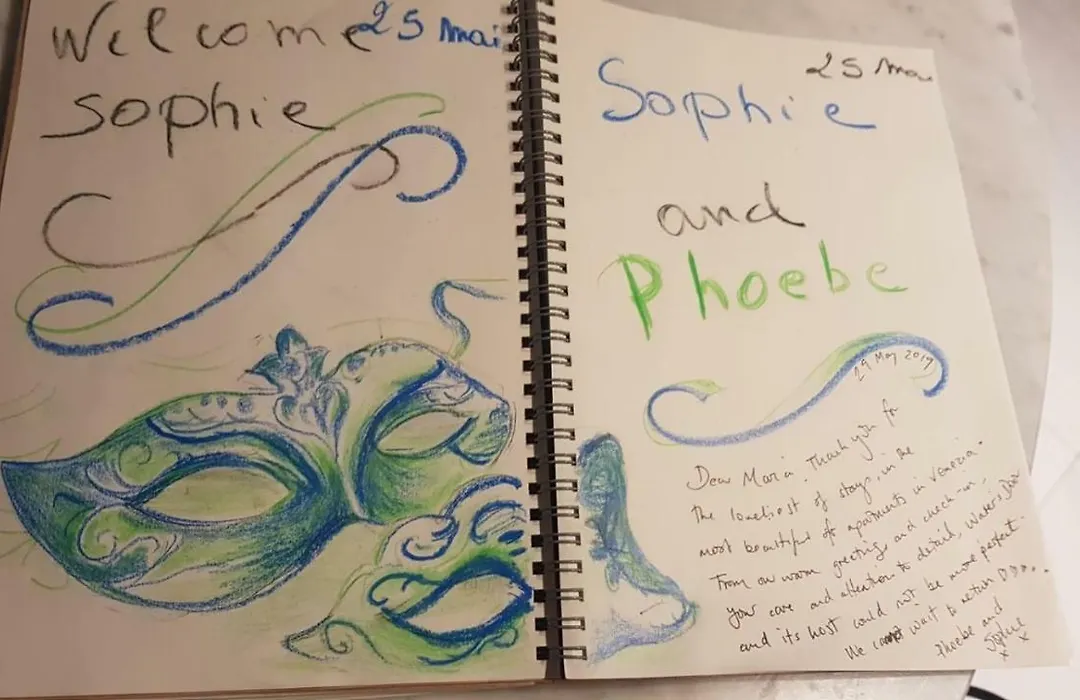 Welcome 25 Mai
Sophie
25 Mai
Sophie
and
Phoebe
29 May 2019
Dear Maria. Thank you for
the loveliest of stays, in the
most beautiful of apartments in Venezia.
From our warm greeting and check-in,
your care and attention to detail, Water's Door
and its host could not be more perfect.
We cannot wait to return
Phoebe and
Sophie
x x